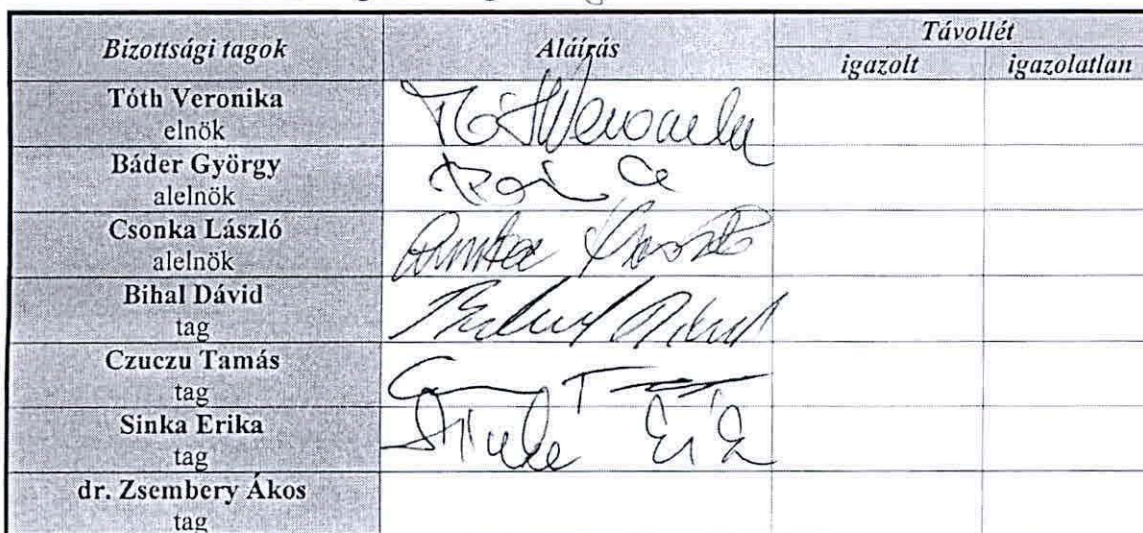 Bizottsági tagok Aláírás Távollét
igazolt igazolatlan
Tóth Veronika
elnök
Tóth Veronika
Báder György
alelnök
Csonka László
alelnök
Csonka László
Bihal Dávid
tag
Bihal Dávid
Czuczu Tamás
tag
Sinka Erika
tag
Sinka Erika
dr. Zsembery Ákos
tag